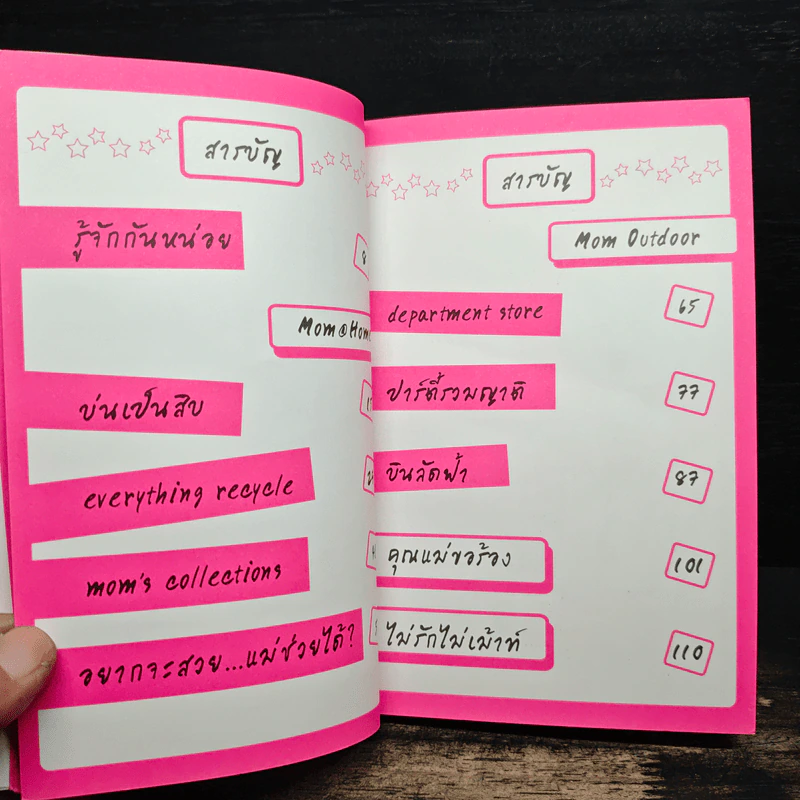 สารบัญ
รู้จักกันหน่อย
Mom@Hom
บ่นเป็นสิบ
everything recycle
mom's collections
อยากจะสวย...แม่ช่วยได้?
สารบัญ
Mom Outdoor
department store 65
ปาร์ตี้รวมญาติ 77
บินลัดฟ้า 87
คุณแม่ขอร้อง 101
ไม่รักไม่เม้าท์ 110